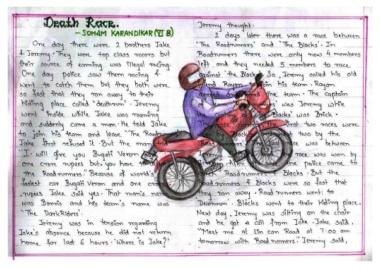 Death Race.
- SOHAM KARANDIKAR (VI B)
One day there were 2 brothers Jake
& Jeremy. They were top class racers but
their source of earning was illegal racing.
One day police saw them racing &
went to catch them but they both were
so fast they ran away to their
hiding place called 'deathrun'. Jeremy
went inside while Jake was roaming
and suddenly came a man. He told Jake
to join his team and leave "The Road
Jake first refused it. But the man
I will give you Bugati Veyron and
one crore rupees but you have
The Roadrunners." Because of world's
fastest car Bugati Veyron and one crore
rupees Jake said yes. That man's name
was Dennis and his team's name was
'The DarkRiders'.
Jeremy was in tension regarding
Jake's absence because he did not return
home for last 6 hours. "Where is Jake?"
Jeremy thought.
2 days later there was a race between
'The Roadrunners' and 'The Blacks'. In
Roadrunners there were only now 4 members
left and they needed 5 members to race
against the Blacks. So, Jeremy called his old
friend to join his team
team. The Captain
was Jeremy while
Blacks' was
two races were
two by the
race was between
Jeremy
police came to
Roadrunners Blacks. But the
Roadrunners & Blacks were so fast that
they ran away. Road runners went to
Deathrun. Blacks went to their hiding place.
Next day, Jeremy was sitting on the chair
and he got a call from Jake. Jake said,
"Meet me at Lin can Road at 7:00 am
tomorrow with Road runners." Jeremy said,